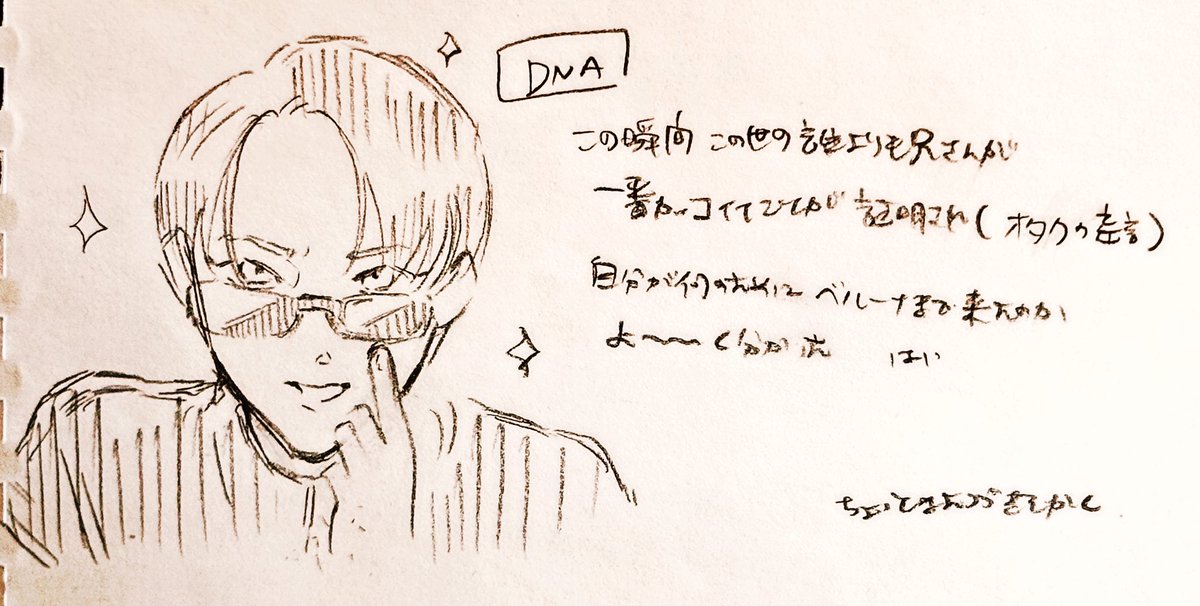 DNA
この瞬間 この世の誰よりも兄さんが
一番カッコイイことが 証明され(オタクの虚言)
自分が何のために ベルーナまで来たのか
よ〜〜〜く分かった はい